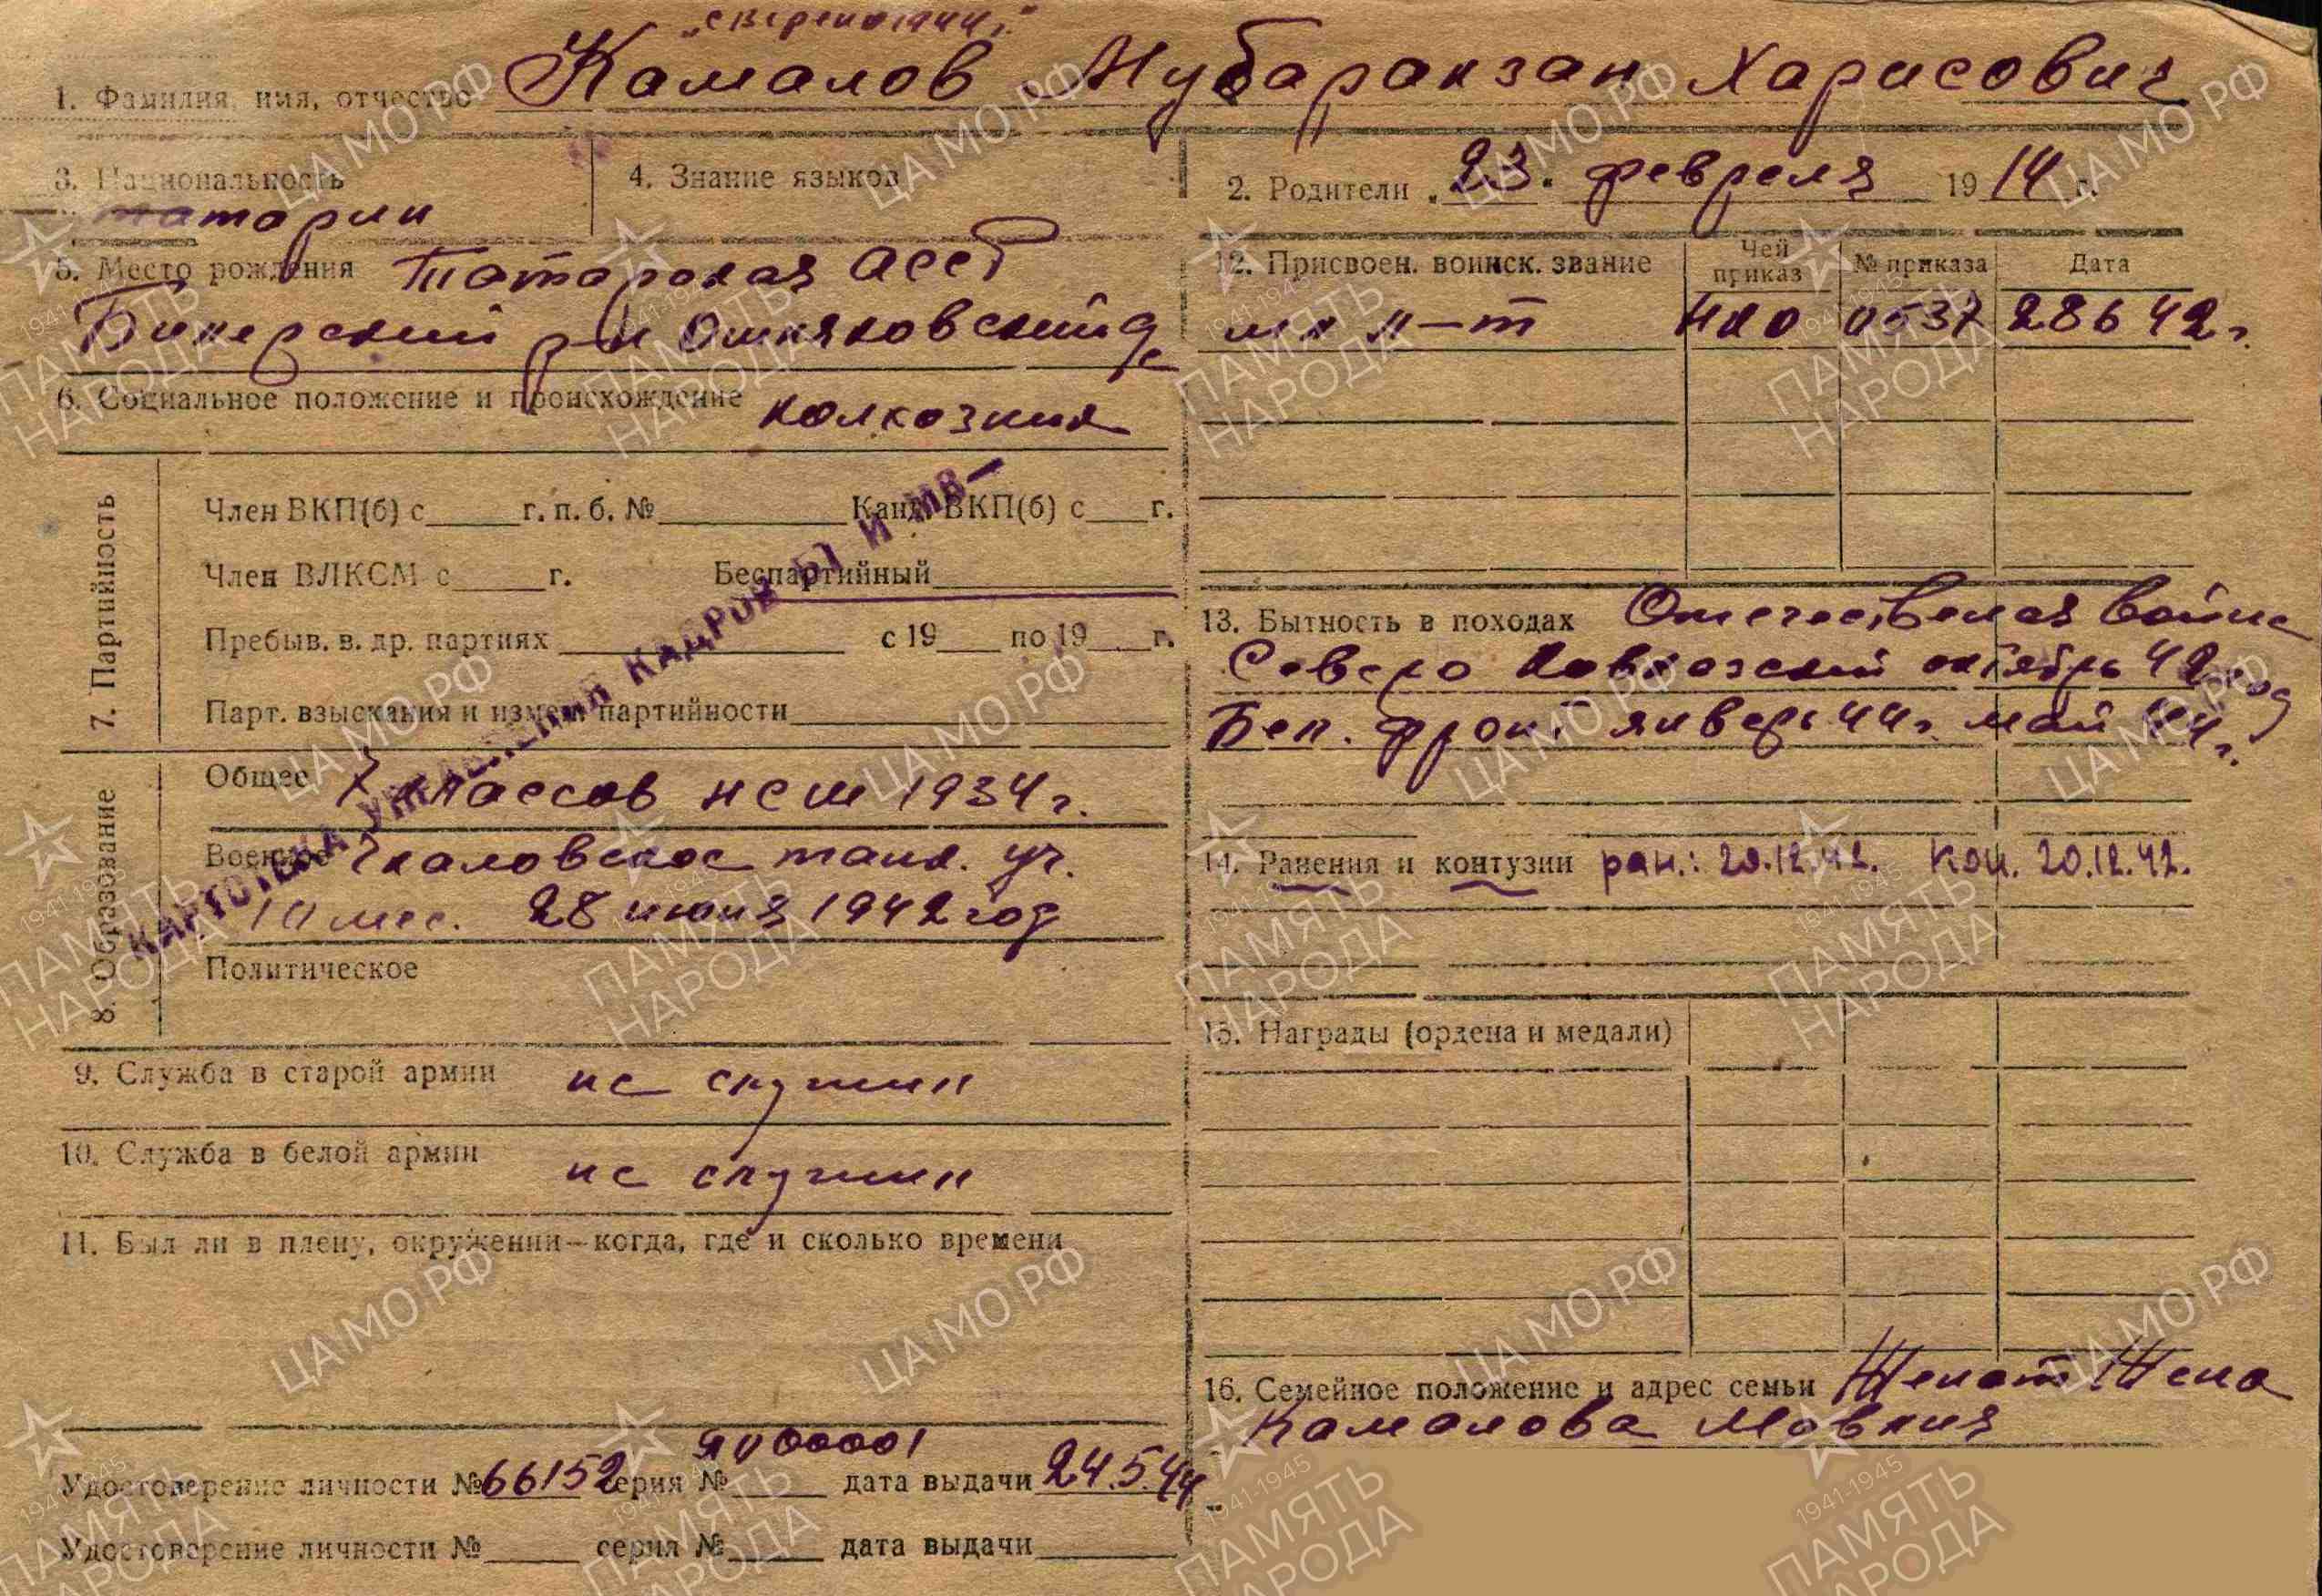 „сверено 1944г."
1. Фамилия, имя, отчество Камалов Мубаракзан Харисович
3. Национальность татарин
4. Знание языков
2. Родители „23" февраля 1914 г.
5. Место рождения Татарская АССР
р-н
6. Социальное положение и происхождение колхозник
12. Присвоен. воинск. звание Чей приказ № приказа Дата
мл л-т НКО 0537 28 6 42г.
7. Партийность
Член ВКП(б) с г. п. б. № Канд. ВКП(б) с г.
Член ВЛКСМ с г. Беспартийный
Пребыв. в. др. партиях с 19 по 19 г.
Парт. взыскания и измен. партийности
КАРТОТЕКА УПРАВЛЕНИЯ КАДРОВ БТ и МВ
13. Бытность в походах Отечественая война
Северо Кавказский октябрь 42 год
Бел. фронт январь 44г. май 44г.
8. Образование
Общее 7 классов нсш 1934г.
Военное Чкаловское танк. уч.
10 мес. 28 июня 1942 год
Политическое
14. Ранения и контузии ран.: 20.12.42. кон. 20.12.42.
9. Служба в старой армии не служил
10. Служба в белой армии не служил
11. Был ли в плену, окружении—когда, где и сколько времени
15. Награды (ордена и медали)
16. Семейное положение и адрес семьи Женат Жена
Камалова
Удостоверение личности № 66152 серия № 00001 дата выдачи 24.5.44
Удостоверение личности № серия № дата выдачи
ЦА МО РФ
1941-1945
ПАМЯТЬ
НАРОДА